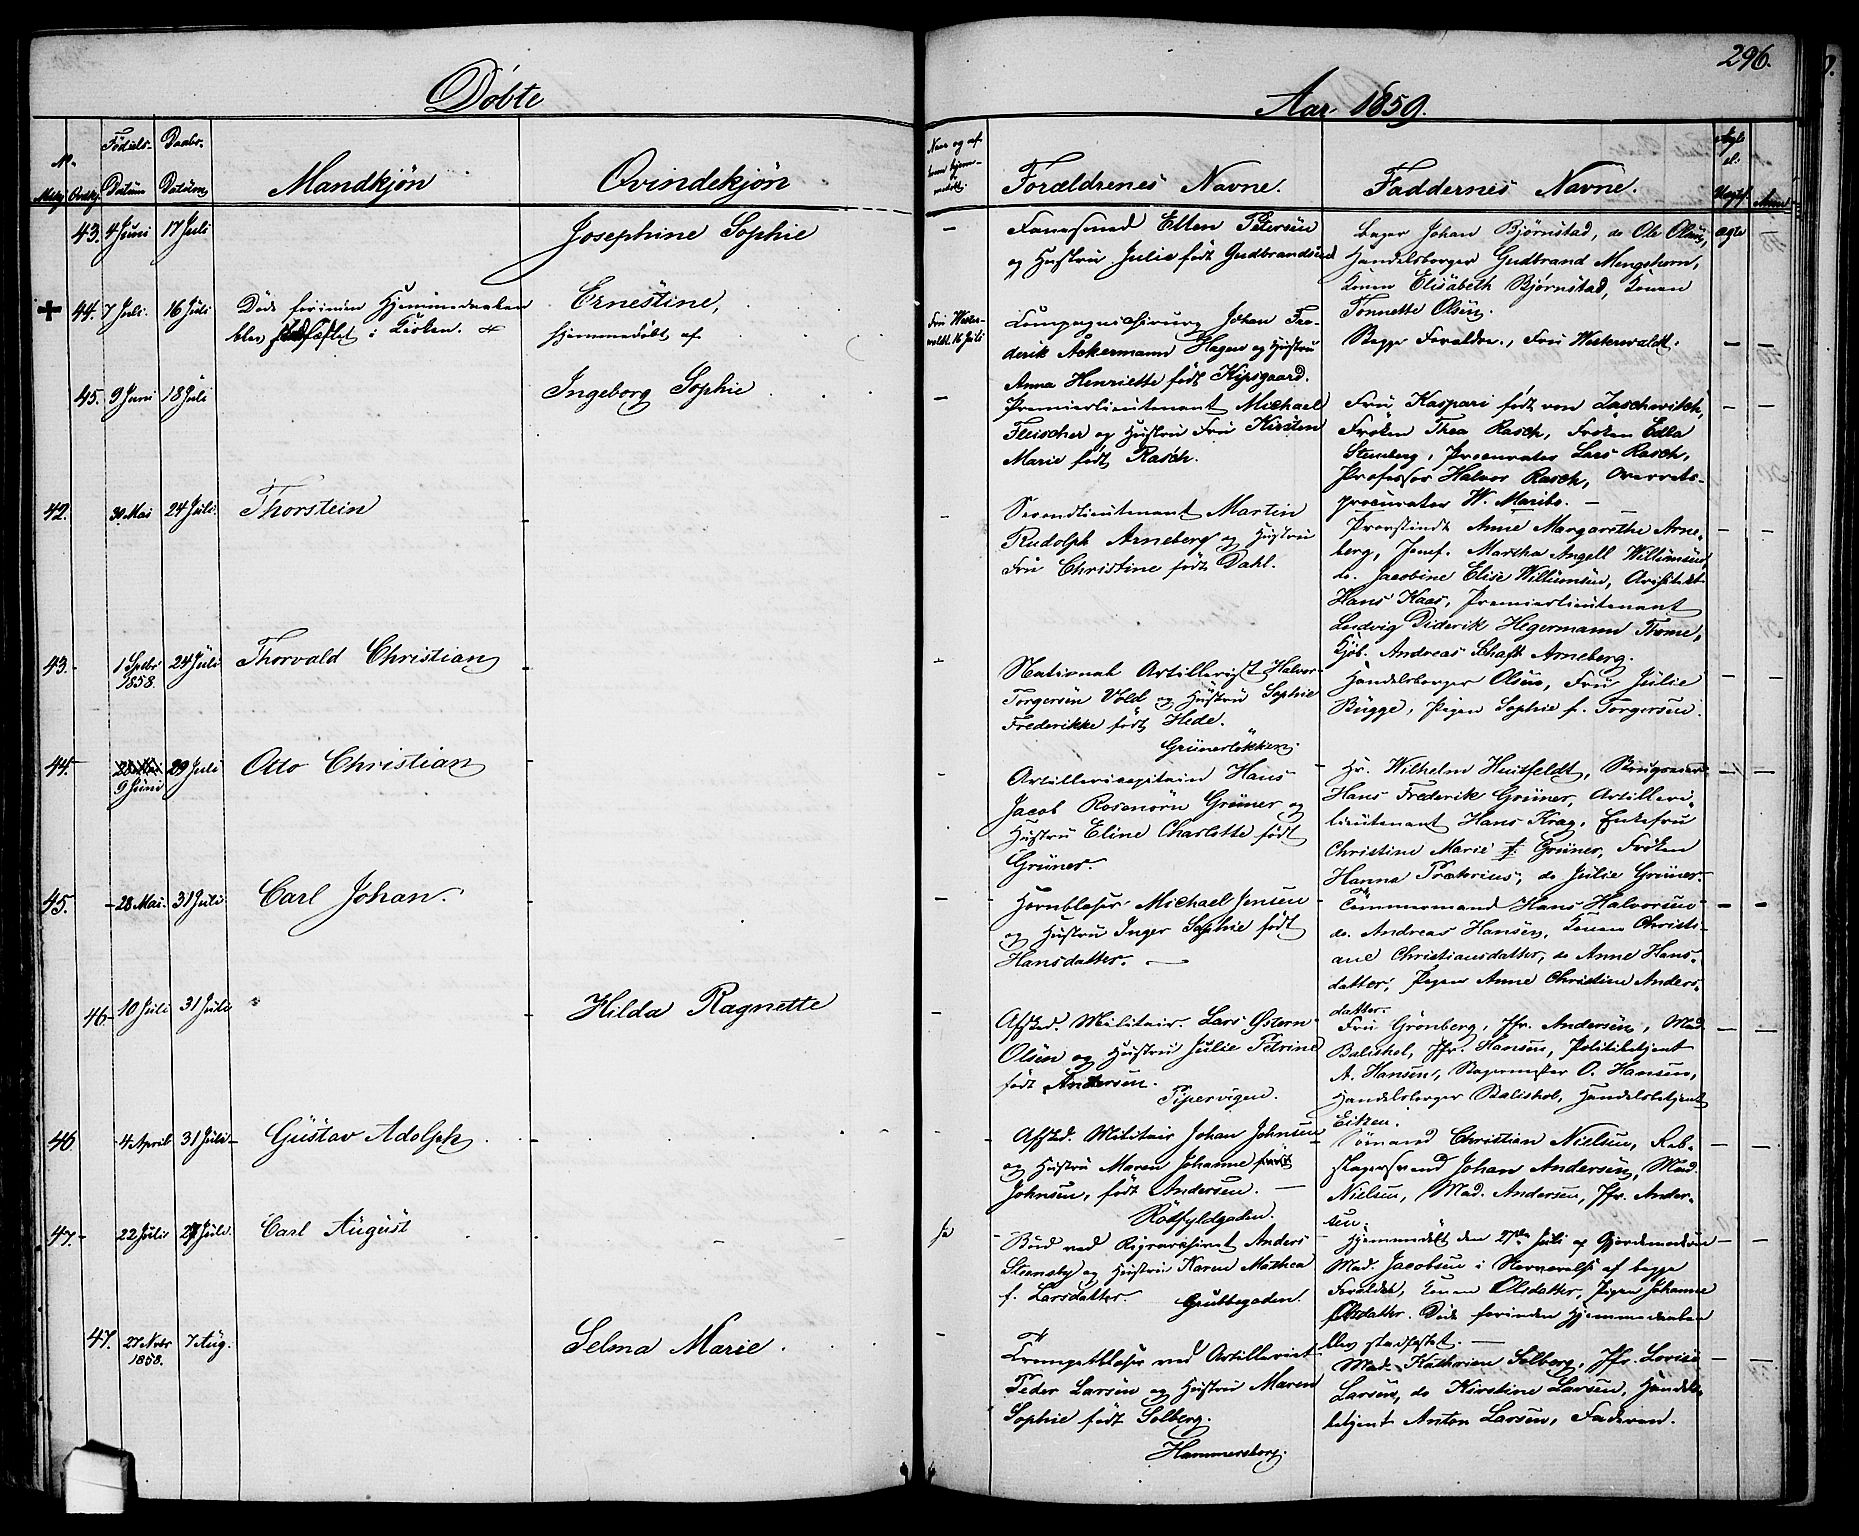 296.
Döbte
Aar 1859.
No.
Mskj. Qvdkj.
Födsels-
Datum
Daabs-
Datum
Mandkjön
Qvindekjön
Naar og af
hvem hjemme-
Forældrenes Navne.
Faddernes Navne.
Anm
43. 4 Juni 17 Juli
Josephine Sophie
–
Petersen
og Hustru Julie født Gudbrandsen
Johan Bjørnstad, do Ole Olsen,
Handelsborger Gudbrand Mengshoen,
Konen Elisabeth Bjørnstad, Konen
Tonnette Olsen.
ægte
44. 7 Juli. 16 Juli
Døde forinden Hjemmedaaben
blev stadfæstet i Kirken.
Ernestine,
hjemmedøbt af
Fru Wester-
waldt 16 Juli
Compagnichirurg Johan Fre-
derik Ackermann Hagen og Hustru
Anna Henriette født Kipsgaard.
Begge Forældre, Fru Westerwaldt.
45. 9 Juni 18 Juli
Ingeborg Sophie
–
Premierlieutenant Michael
Fleischer og Hustru Fru Kirsten
Marie født Rasch.
Fru Kaspari født von Zaschwitch,
Frøken Thea Rasch, Frøken Edla
Stenberg, Procurator Lars Rasch,
Professor Halvor Rasch, Overrets-
procurator W. Maribo.
42. 30 Mai 24 Juli.
Thorstein
Secondlieutenant Martin
Rudolph Arneberg og Hustru
Fru Christine født Dahl.
Provstinde Anne Margarethe Arne-
berg, Jomf. Martha Angell Willumsen,
do. Jacobine Elise Willumsen, Architekt
Hans Kaas, Premierlieutenant
Ludvig Diderik Hegermann Thome,
Andreas Schaft Arneberg.
43. 1 Septbr 24 Juli
1858.
Thorvald Christian
National Artillerist Halvor
Torgersen Vold og Hustru Sophie
Frederikke født Hede.
Grünerløkken.
Handelsborger Olsen, Fru Julie
Bugge, Pigen Sophie f. Torgersen.
44. 29 Juli
9 Juni
Otto Christian
Artillericapitain Hans
Jacob Rosenörn Grüner og
Hustru Eline Charlotte født
Grüner.
Hr. Wilhelm Huitfeldt, Brugseier
Hans Frederik Grüner, Artilleri-
lieutenant Hans Krag, Enkefru
Christine Marie f. Grüner, Frøken
Hanna Prætorius, do Julie Grüner.
45. 28 Mai. 31 Juli
Carl Johan.
Hornblæser Michael Jensen
og Hustru Inger Sophie født
Hansdatter.
Tömmermand Hans Halvorsen
do. Andreas Hansen, Konen Christi-
ane Christiansdatter, do Anne Hans-
datter, Pigen Anne Christine Anders-
datter.
46. 10 Juli 31 Juli
Hilda Ragnette
Afsked. Militair. Lars Østern
Olsen og Hustru Julie Petrine
født Andersen.
Pipervigen.
Fru Grönberg, Jfr. Andersen, Mad.
Balishol, Jfr. Hansen, Politibetjent
A. Hansen, Bagermester O. Hansen,
Handelsborger Balishol, Handelsbetjent
Eitzen.
46. 4 April 31 Juli
Gustav Adolph
Afsked. Militair Johan Johnsen
og Hustru Maren Johanne
Johnsen, født Andersen.
Rödfyldgaden.
Sømand Christian Nielsen, Reb-
slagersvend Johan Andersen, Mad.
Nielsen, Mad. Andersen, Jfr. Ander-
sen.
47. 22 Juli 27 Juli.
Carl August
Ja
Bud ved Rigsarchivet Anders
Steensby og Hustru Karen Mathea
f. Larsdatter. Grubbegaden.
Hjemmedöbt den 27de Juli af Gjordemoderen
Mad. Jacobsen i Nærværelse af begge
Forældre, Konen Olsdatter, Pigen Johanne
Olsdatter. Døde forinden Hjemmedaaben
blev stadfæstet.
47. 27 Novbr 7 Aug.
1858.
Selma Marie
Trompetblæser ved Artilleriet
Peder Larsen og Hustru Maren
Sophie født Solberg.
Hammersborg.
Mad. Kathrine Solberg, Jfr. Lovise
Larsen, do Kirstine Larsen, Handels-
betjent Anton Larsen, Faderen.